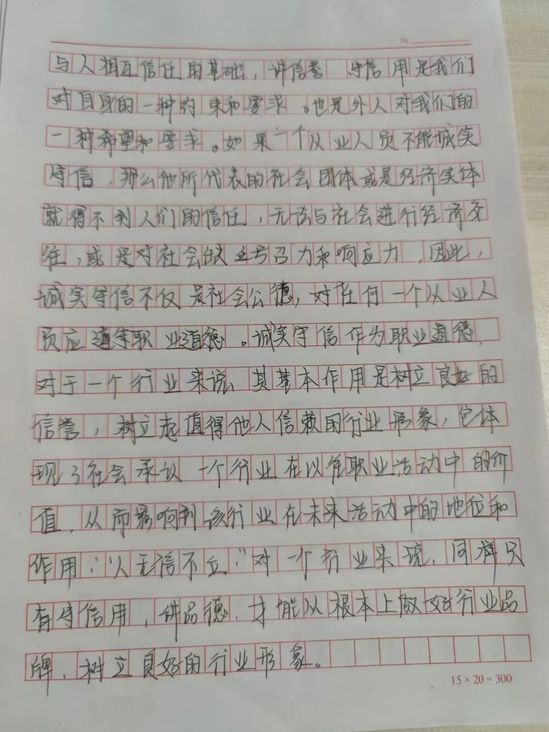 No
与人相互信任的基础，讲信誉 守信用是我们
对自身的一种约束和要求。也是外人对我们的
一种希望和要求。如果一个从业人员不能诚实
守信，那么他所代表的社会团体或是经济实体
就得不到人们的信任，无法与社会进行经济交
往，或是对社会缺乏号召力和响应力，因此，
诚实守信不仅是社会公德，对任何一个从业人
员应遵守职业道德。诚实守信作为职业道德，
对于一个行业来说，其基本作用是树立良好的
信誉，树立起值得他人信赖的行业形象，它体
现了社会承认一个行业在以往职业活动中的价
值，从而影响到该行业在未来活动中的地位和
作用，“人无信不立”对一个行业来说，同样只
有守信用，讲品德，才能从根本上做好行业品
牌，树立良好的行业形象。
15×20=300